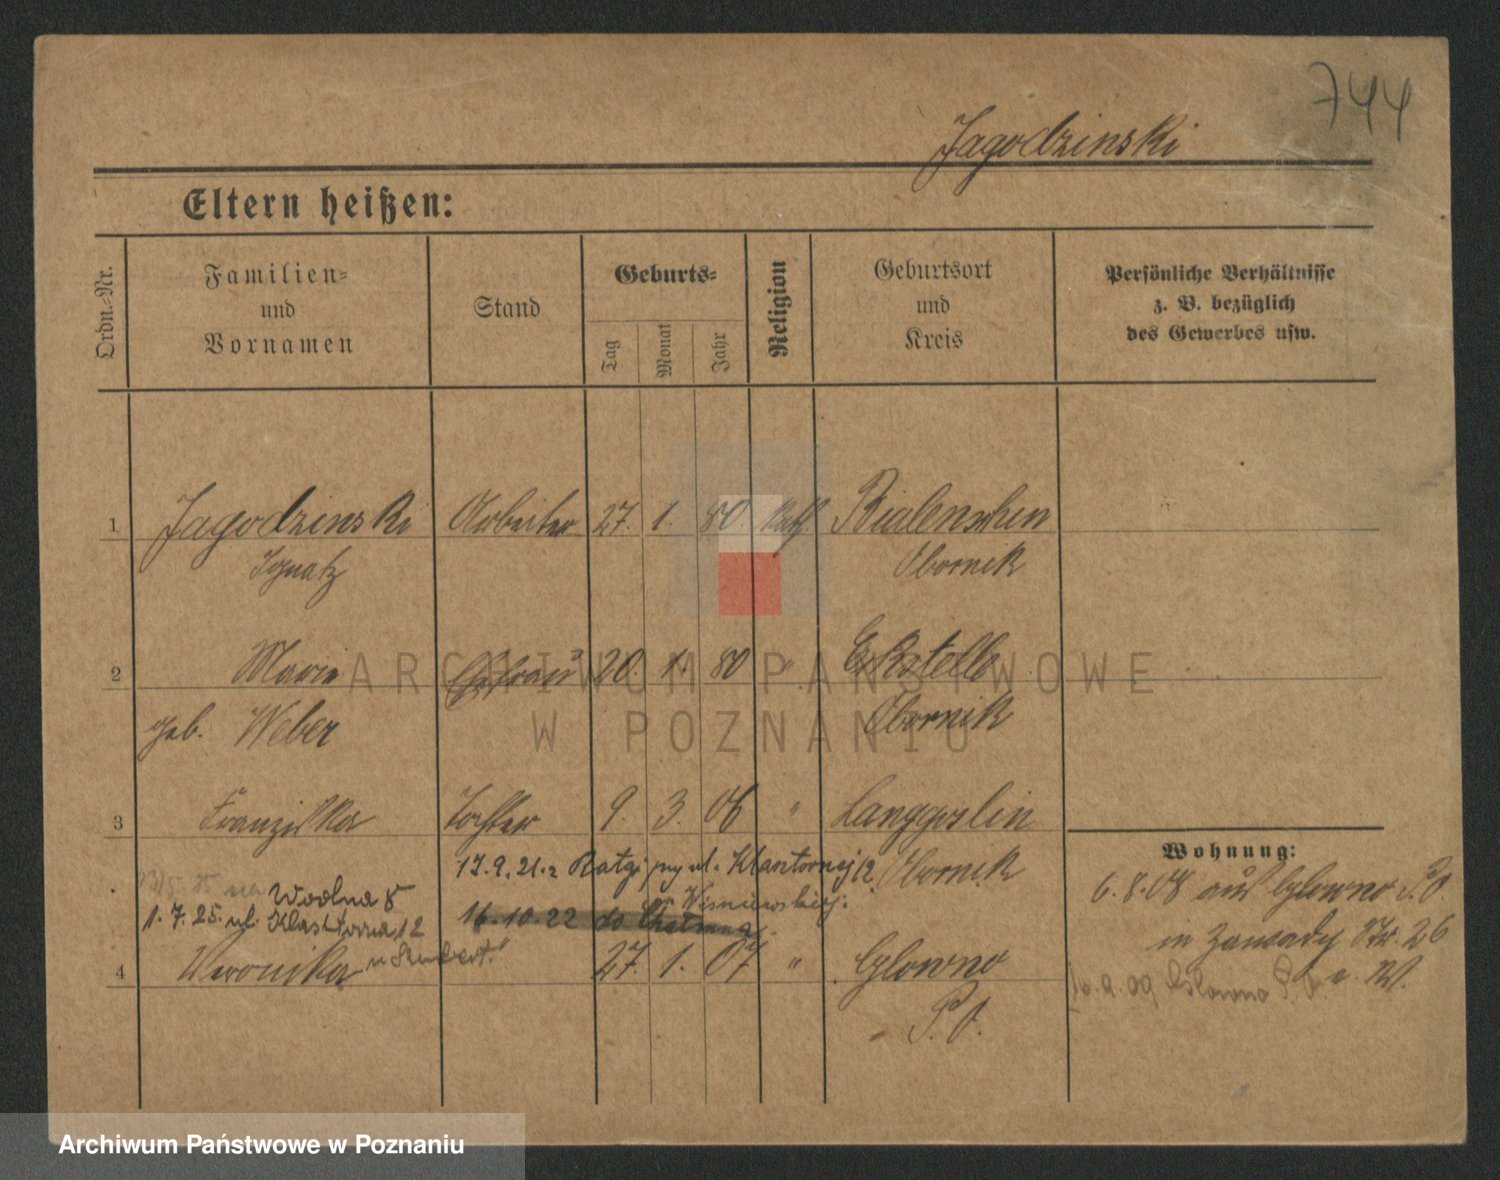 744
Jagodzinski
Eltern heißen:
Ordn.-Nr.
Familien-
und
Vornamen
Stand
Geburts-
Tag
Monat
Jahr
Religion
Geburtsort
und
Kreis
Persönliche Verhältnisse
z. B. bezüglich
des Gewerbes usw.
1 Jagodzinski Arbeiter 27. 1. 80 Kath Bialenschin
Ignatz Obornik
2 Marie Ehefrau 20. 1. 80 " Eckstelle
geb. Weber Obornik
3 Franziska Tochter 9. 3. 06 " Langgoslin
17.9.21. z Ratg. przy ul. Klasztornej 12 Obornik
Wodna 8 Wisniewskiej.
1.7.25. ul. Klasztorna 12 16.10.22 do
4 Weronika 27. 1. 07 " Glowno
P. O.
Wohnung:
6.8.08 aus Glowno P. O.
n Zawady Str. 26
16.9.09 Glowno P. O. n. W.
ARCHIWUM PAŃSTWOWE
W POZNANIU
Archiwum Państwowe w Poznaniu